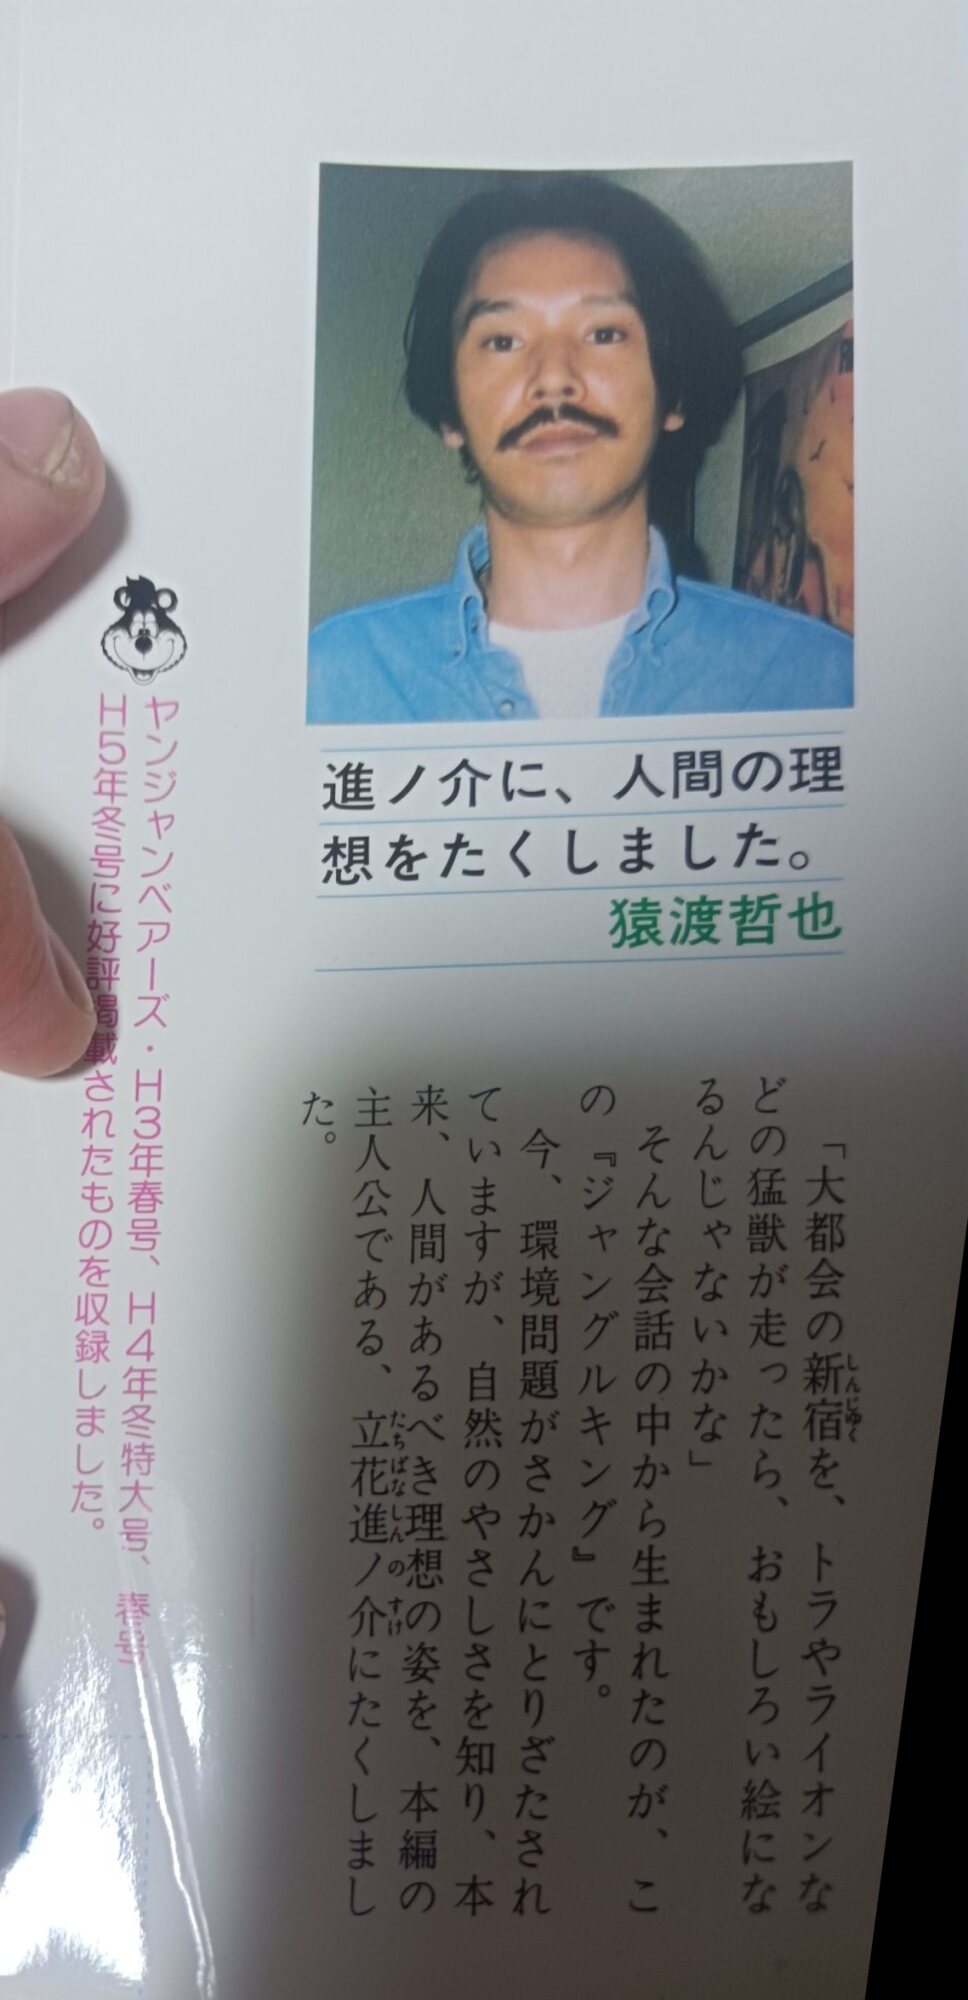 進ノ介に、人間の理
想をたくしました。
猿渡哲也
「大都会の新宿を、トラやライオンな
どの猛獣が走ったら、おもしろい絵にな
るんじゃないかな」
そんな会話の中から生まれたのが、こ
の『ジャングルキング』です。
今、環境問題がさかんにとりざたされ
ていますが、自然のやさしさを知り、本
来、人間があるべき理想の姿を、本編の
主人公である、立花進ノ介にたくしまし
た。
ヤンジャンベアーズ・H3年春号、H4年冬特大号、春号、
H5年冬号に好評掲載されたものを収録しました。